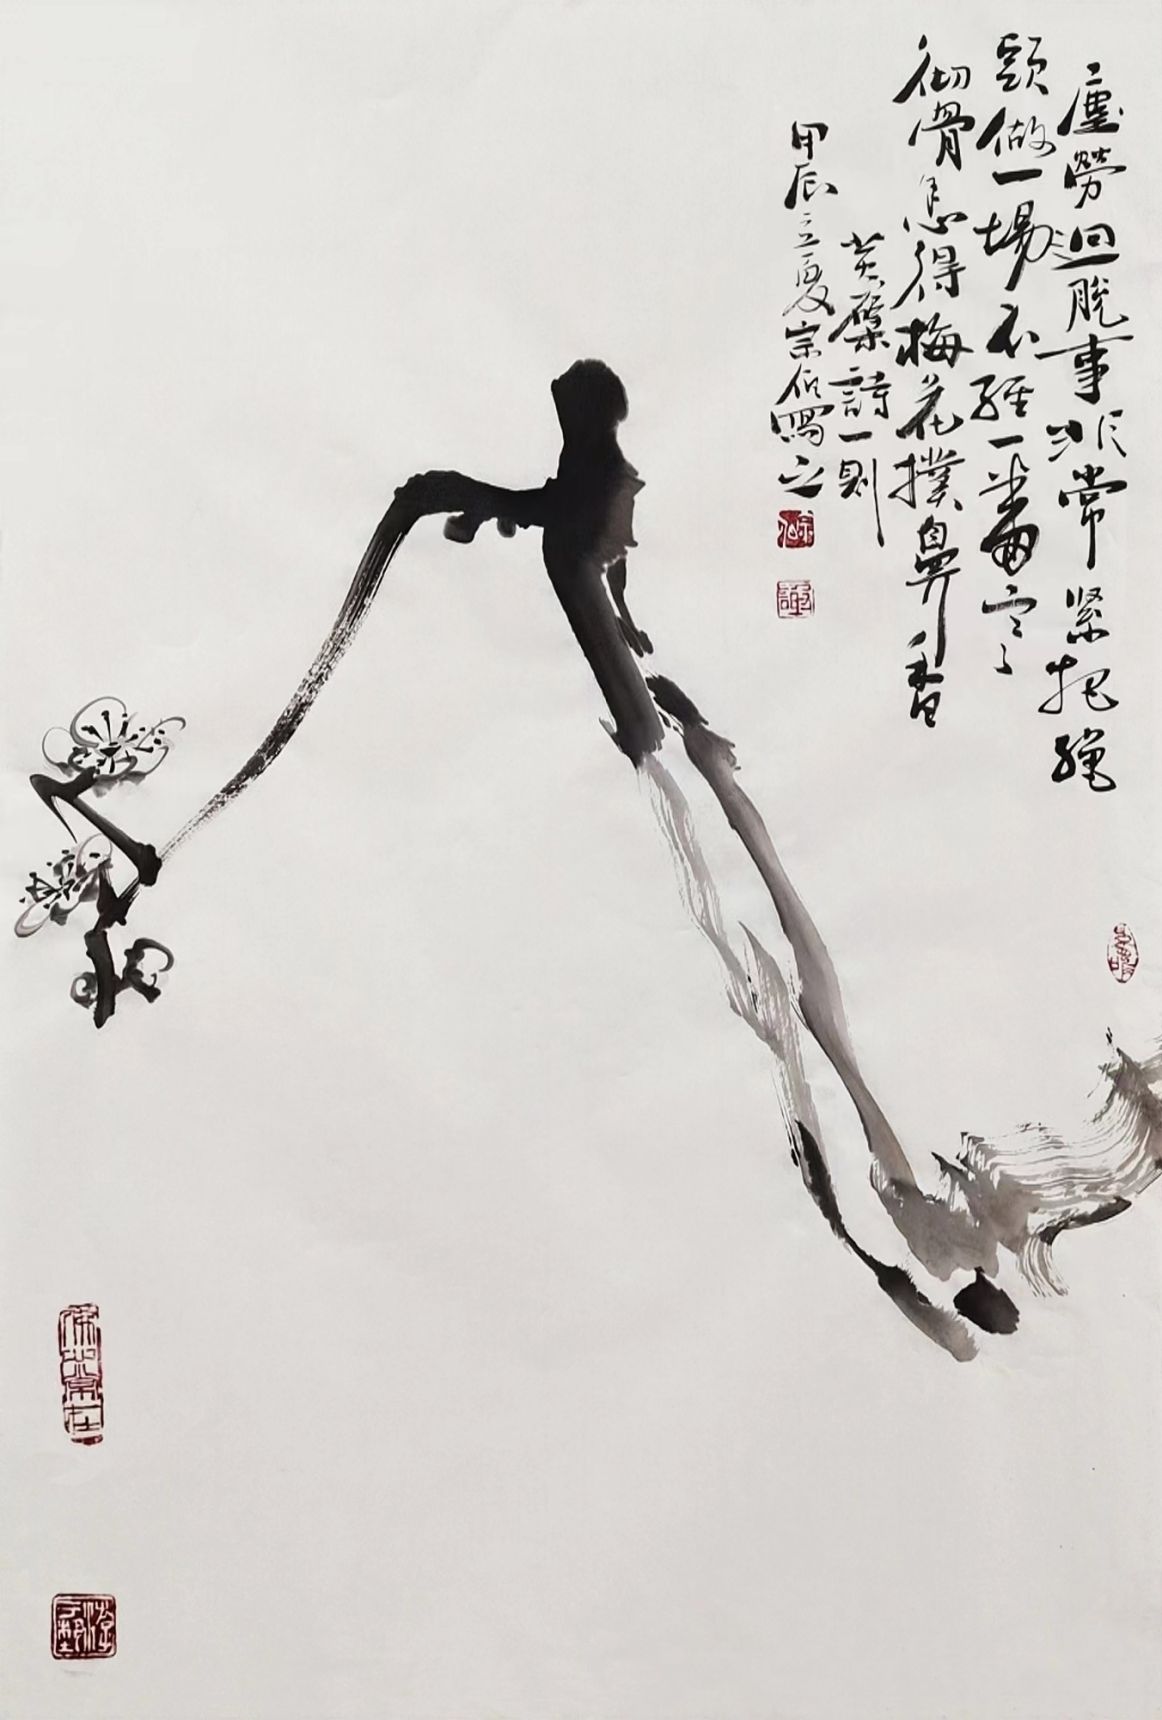 塵勞迴脫事非常緊把繩
頭做一場不經一番寒
徹骨怎得梅花撲鼻香
黃檗詩一則
甲辰立夏宗伯寫之
佛心常在